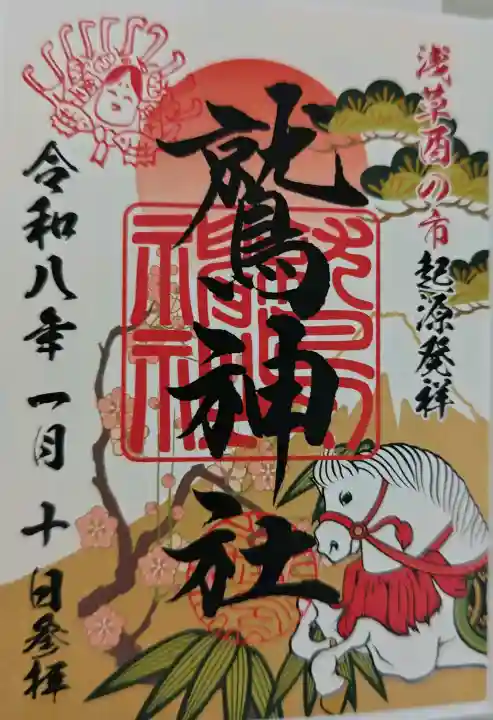 浅草酉の市起源発祥
鷲神社
令和八年一月十日参拝